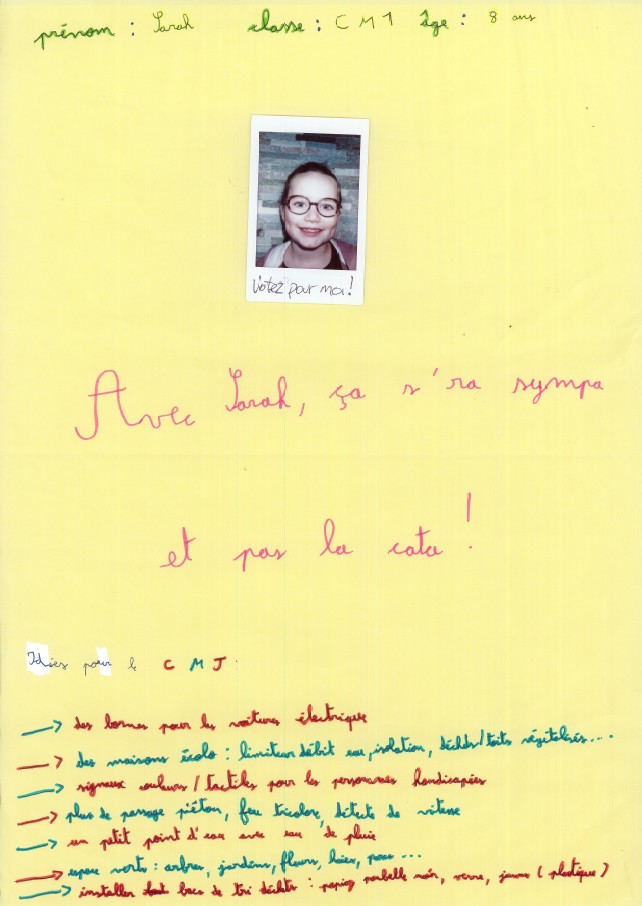 prénom : Sarah classe : CM1 âge : 8 ans
Votez pour moi !
Avec Sarah, ça s'ra sympa
et pas la cata !
Idées pour le CMJ :
→ des bornes pour les voitures électrique
→ des maisons écolo : limiteur débit eau, isolation, déchts/toits végétalisés...
→ signaux couleurs / tactiles pour les personnes handicapées
→ plus de passage piéton, feu tricolor, détects de vitesse
→ un petit point d'eau avec eau de pluie
→ espace verts : arbres, jardins, fleurs, haies, parc...
→ installer bacs de tri déchts : papier poubelle noir, verre, jaune (plastique)